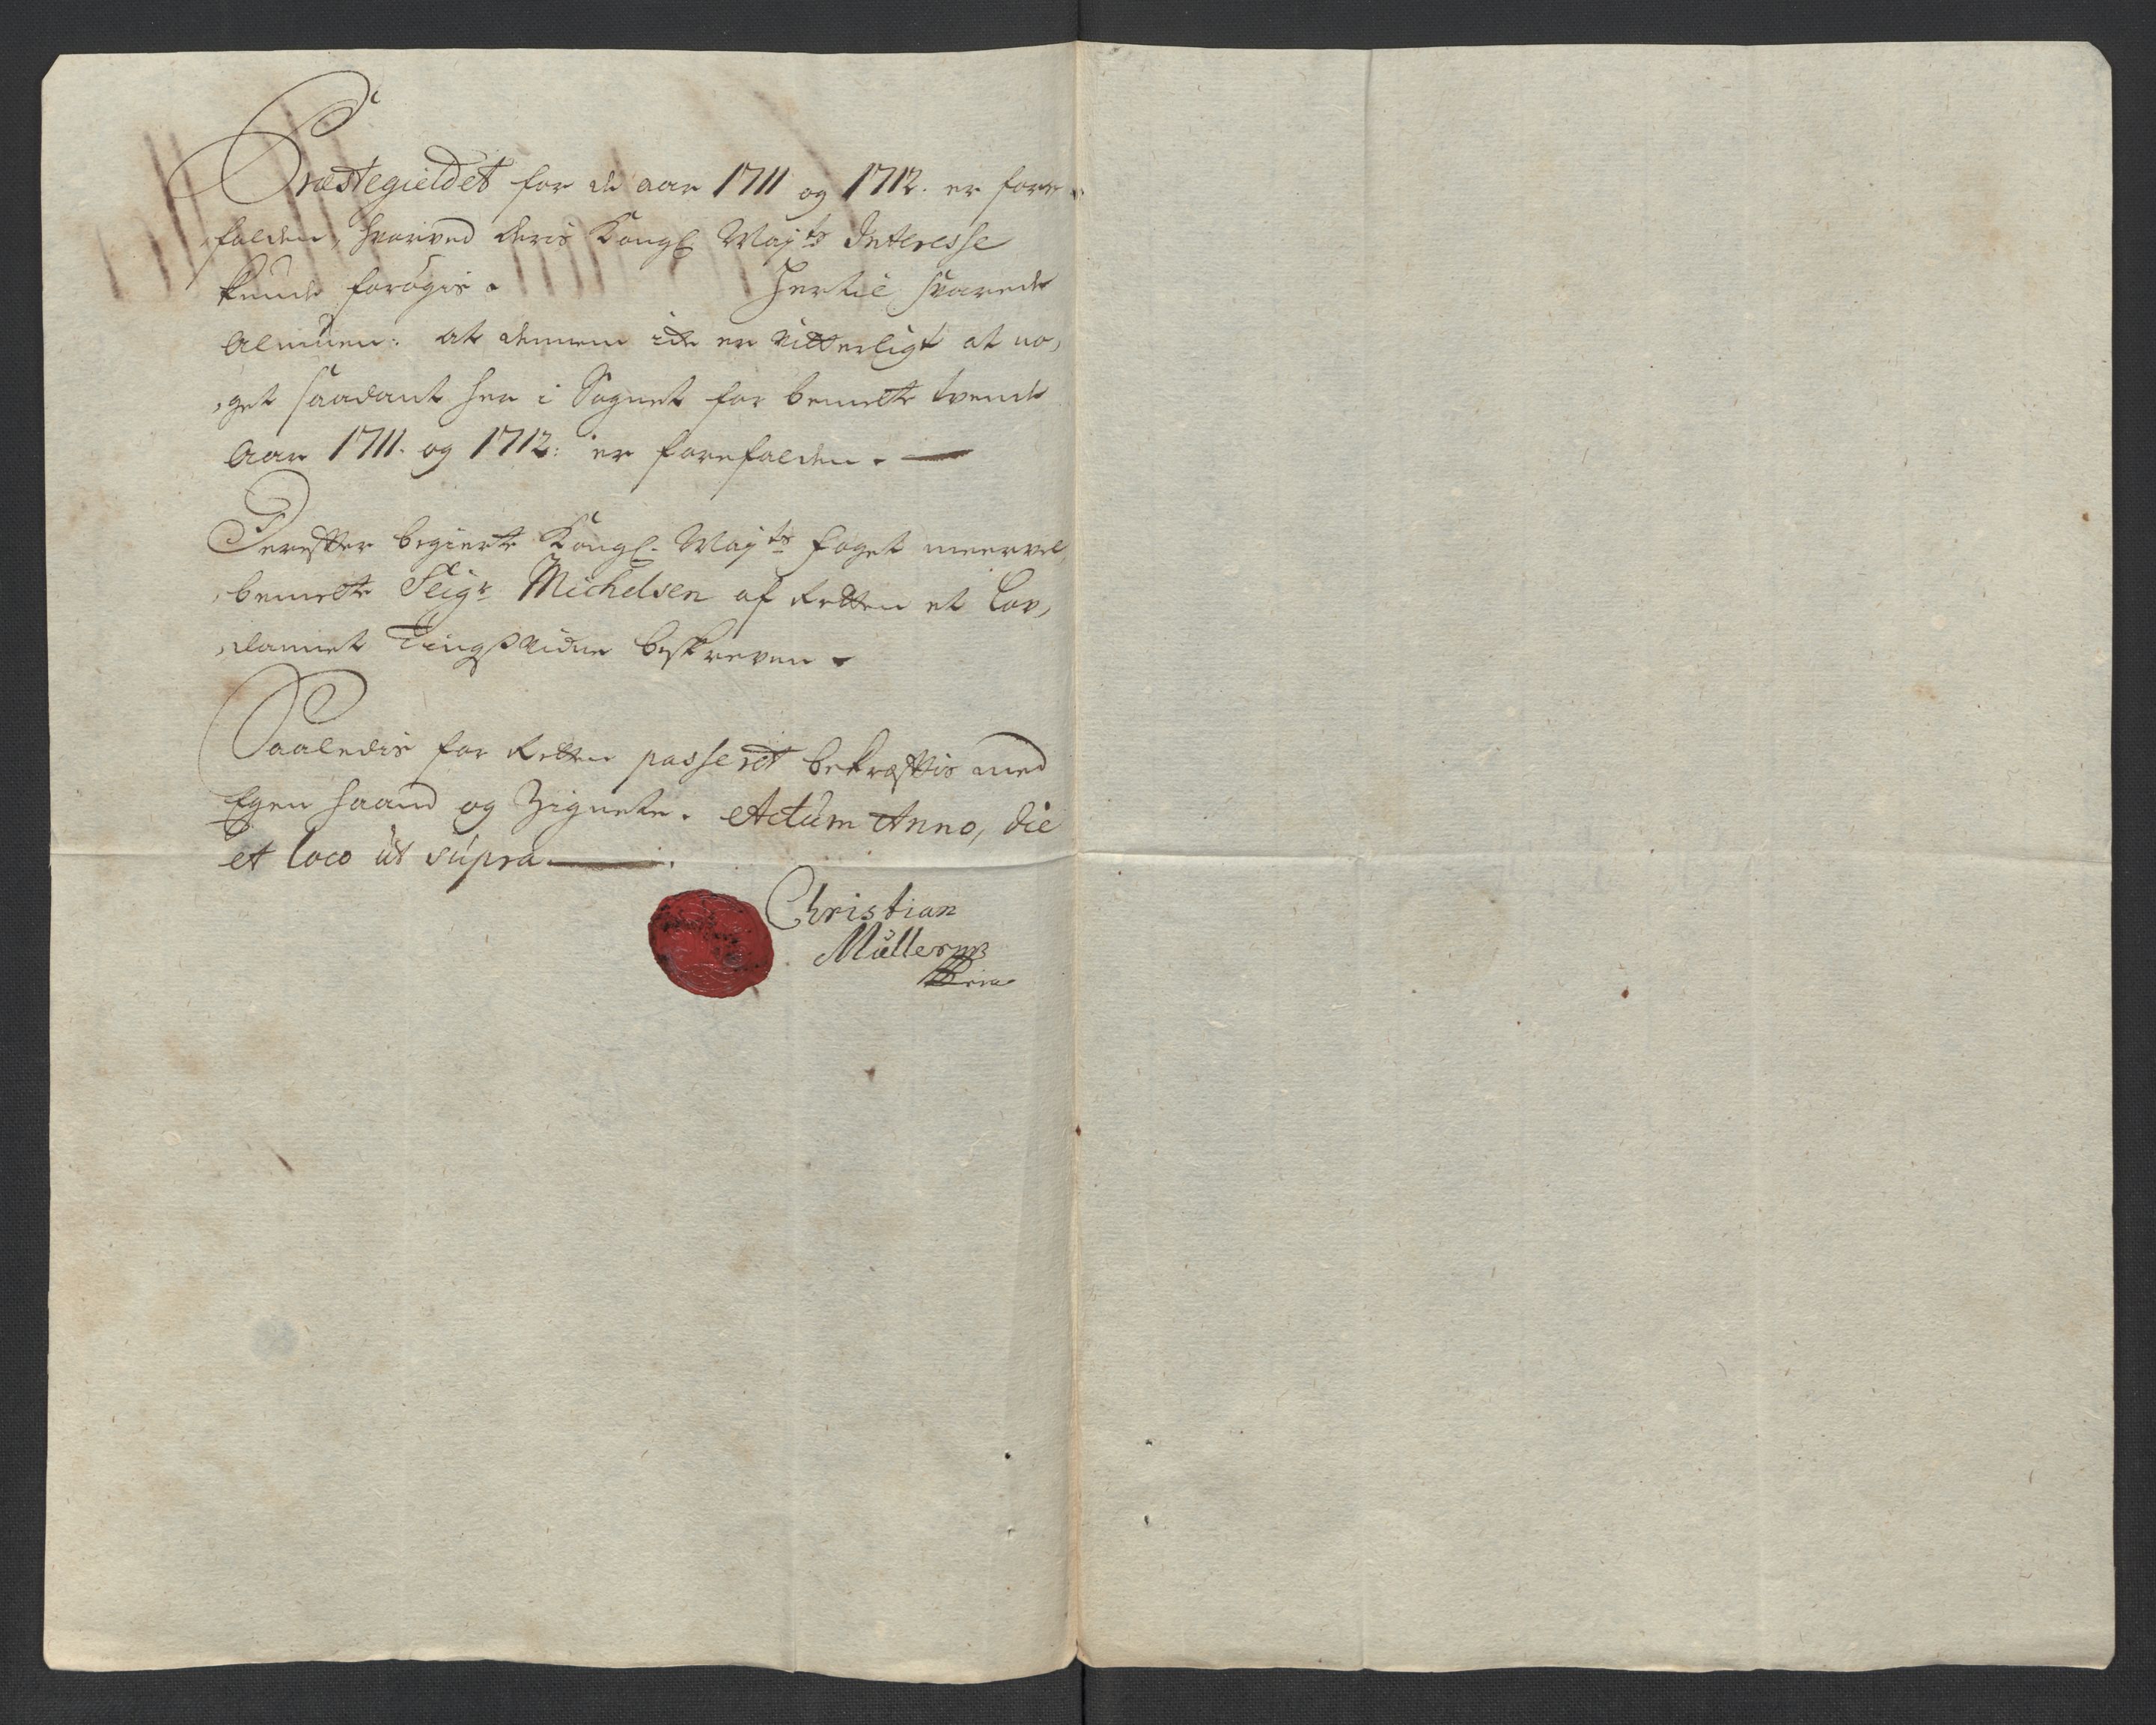 Præstegieldet for de aar 1711 og 1712. er fore
falden, hvorved deris Kongl Mayts Interesse
kunde forøgis. Hertil svarede
Almuen: at dennem icke er vitterligt at no,
,get saadant her i Sognet for bemelte tvende
Aar 1711. og 1712: er forefalden.
Derefter begierte Kongl. Mayts foget meervel,
,bemelte Seigr Michelsen af Retten et Lov,
,dannet Tingsvidne beskreven.
Saaledis for Retten passeret bekræftis med
Egen haand og Zignete. Actum Anno, die
et loco ut supra
Christian
Mullers